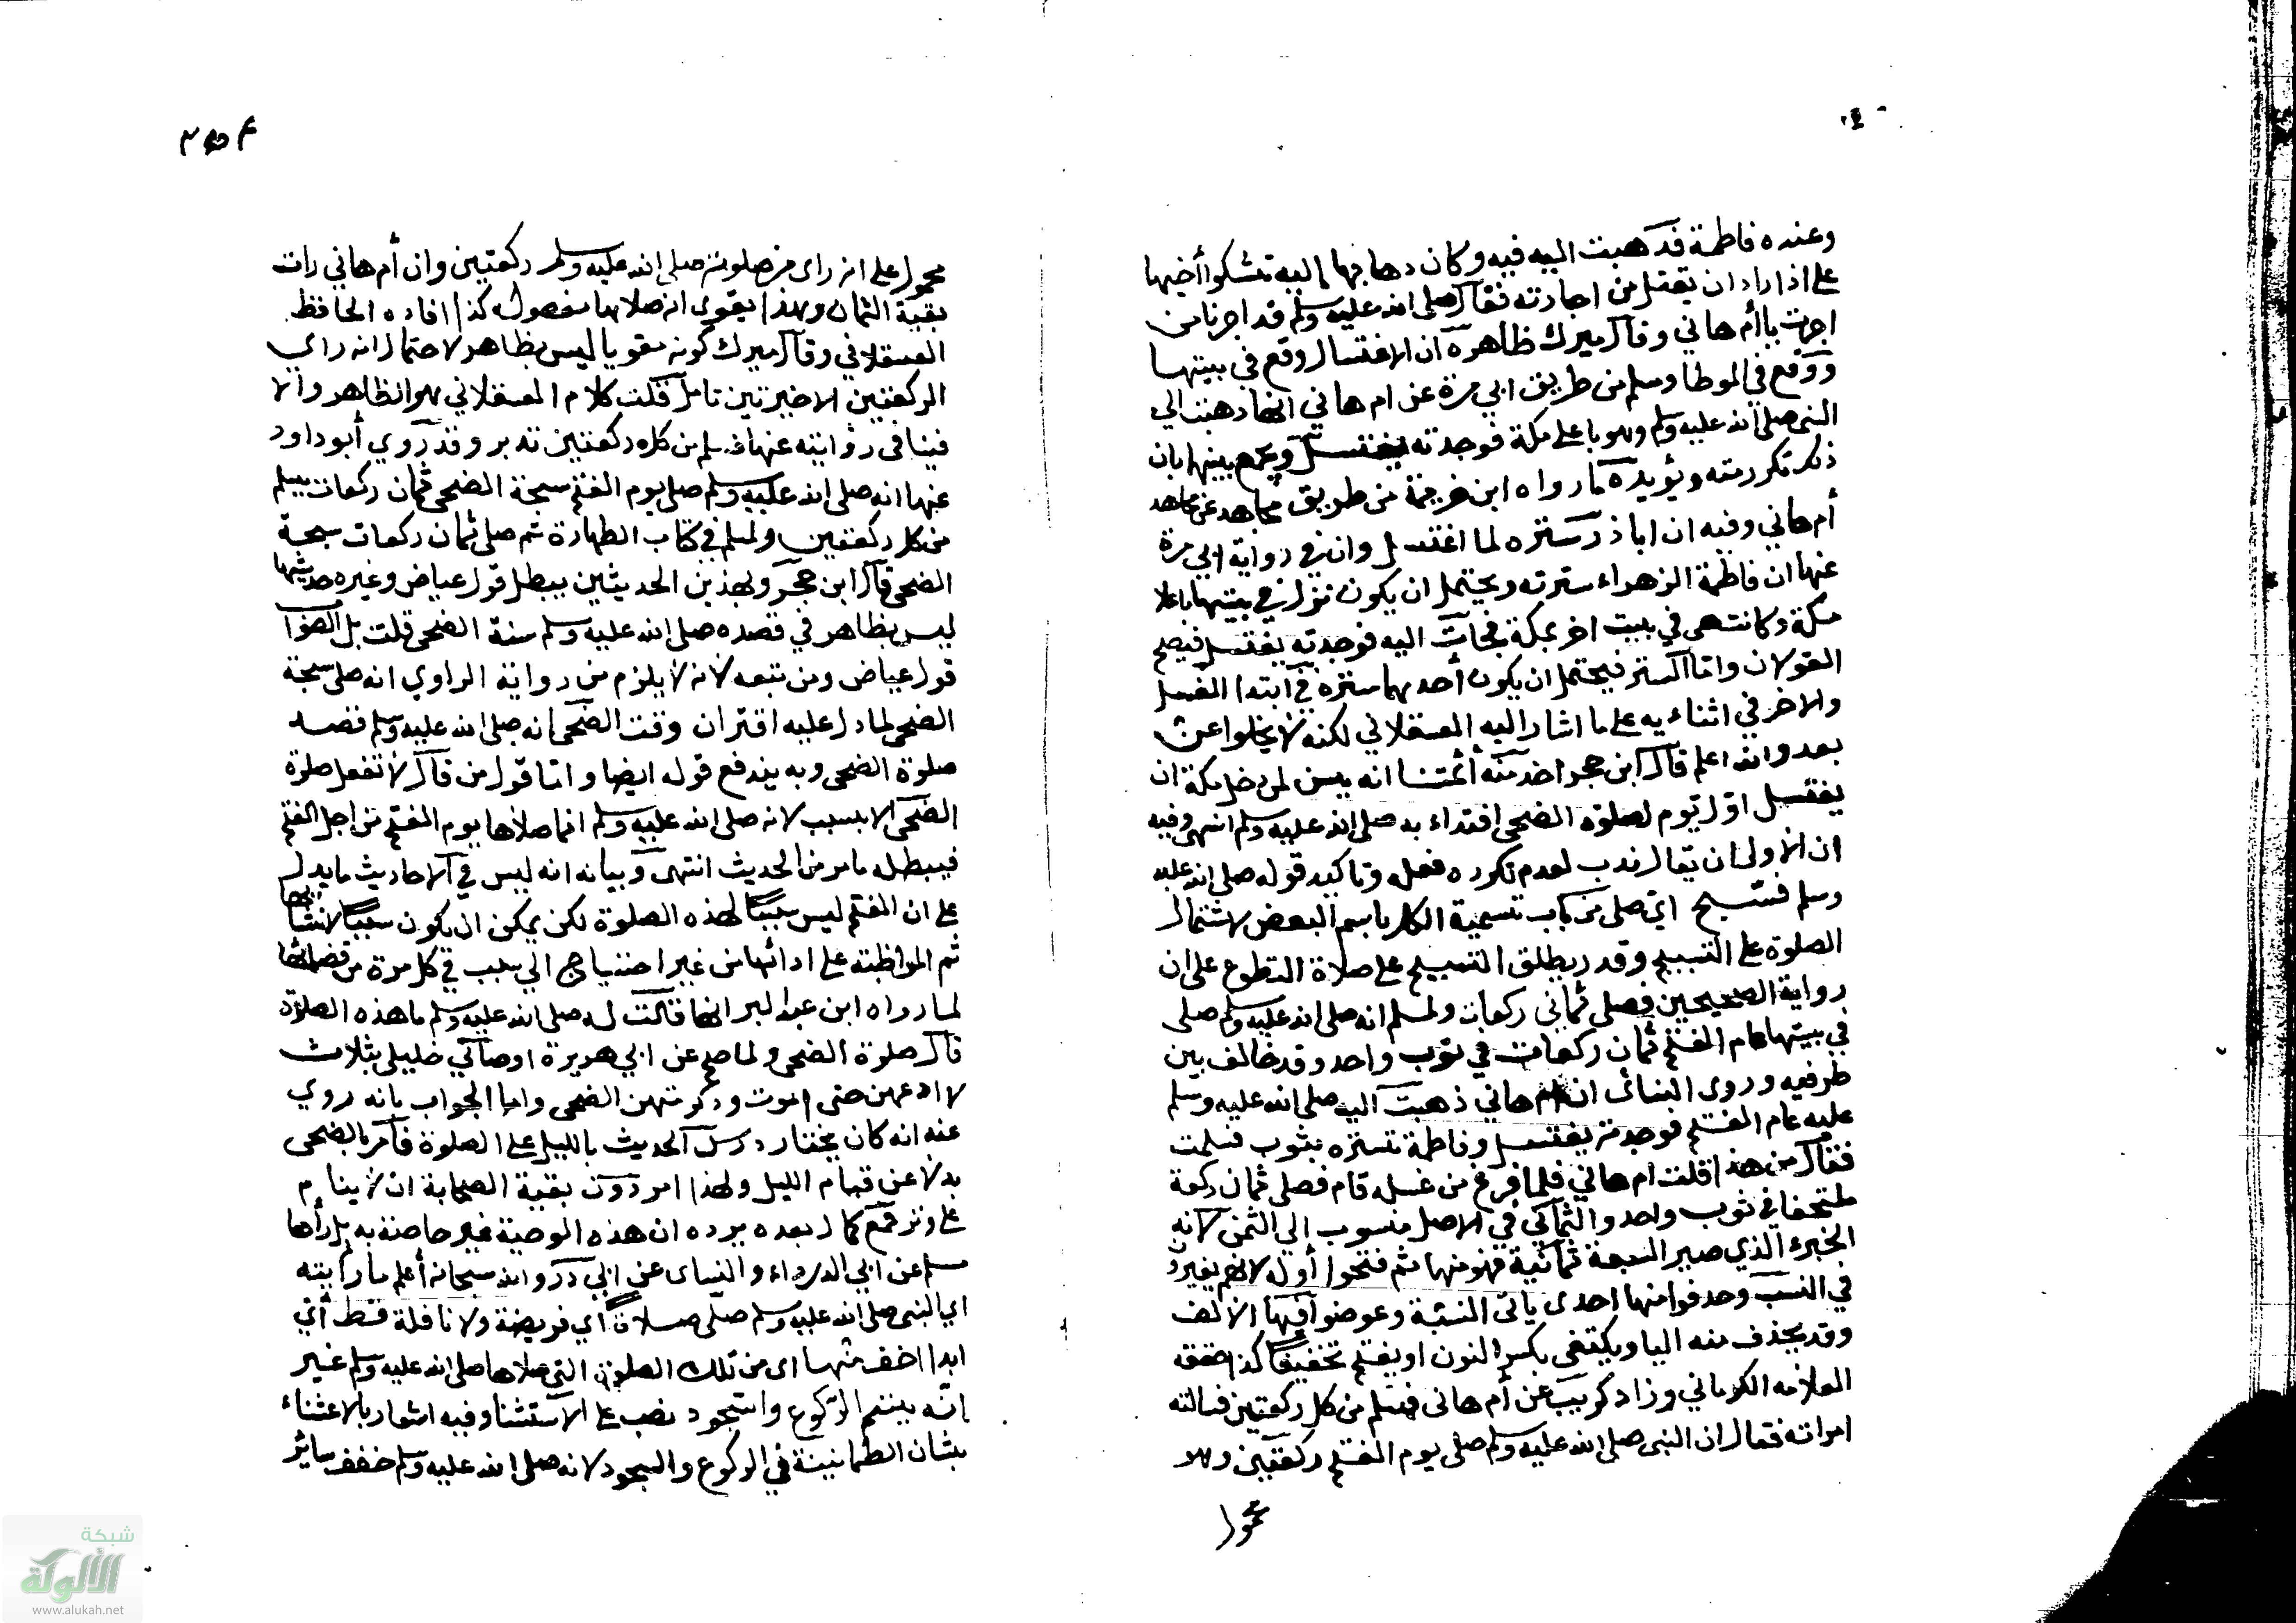 وعنده فاطمة قد هبت اليه فيه وكان ذهابها اليه تشكوا أخيها
علي اذا راد ان يقتل من اجارته فقال صلى الله عليه وسلم قد اجرنا من
اجرت يا أم هاني وقال ميرك ظاهره ان الاغتسال وقع في بيتها
ووقع في الموطا ومسلم من طريق ابي مرة عن ام هاني انها ذهبت الي
النبي صلى الله عليه وسلم وهو با على مكة فوجدته يغتسل ويجمع بينها بان
ذلك تكرر منه ويؤيده ما رواه ابن خزيمة من طريق مجاهد عن
أم هاني وفيه ان اباذر ستره لما اغتسل وان في رواية ابي مرة
عنها ان فاطمة الزهراء سترته ويحتمل ان يكون نزل في بيتها باعلا
مكة وكانت هي في بيت اخر بمكة فجآت اليه فوجدته يغتسل فيصح
القولان واما الستر فيحتمل ان يكون أحدهما ستره في ابتدا الغسل
والاخر في اثناءيه على ما اشار اليه العسقلاني لكنه لا يخلوا عن
بعد والله اعلم قال ابن حجر اخذ منه أئمتنا انه يسن لمن دخل مكة ان
يغتسل اول يوم لصلوة الضحى اقتداء به صلى الله عليه وسلم انتهى وفيه
ان الأولى ان يقال ندب لعدم تكرره فعله وتاكيد قوله صلى الله عليه
وسلم فسبح اي صلى من باب تسمية الكل باسم البعض لاشتمال
الصلوة على التسبيح وقد يطلق التسبيح على صلاة التطوع على ان
رواية الصحيحين فصلى ثماني ركعات ولمسلم انه صلى الله عليه وسلم صلى
في بيتها عام الفتح ثمان ركعات في ثوب واحد وقد خالف بين
طرفيه وروى النسائى ان ام هاني ذهبت اليه صلى الله عليه وسلم
عليه عام الفتح فوجدته يغتسل وفاطمة تستره بثوب فسلمت
فقال من هذا قلت ام هاني فلما فرغ من غسله قام فصلى ثمان ركعة
ملتحفا في ثوب واحد والثماني في الاصل منسوب الي الثمن لانه
الجزء الذي صير السبعة ثمانية فهو منها ثم فتحوا أوله لانهم يغيرون
في النسب وحذفوا منها احدى يائى النسبة وعوضوا فيها الالف
وقد يحذف منه اليا ويكتفى بكسر النون او يفتح تخفيفاً كذا حققه
العلامه الكرماني وزاد كريب عن أم هانى فسلم من كل ركعتين فسالته
امراته فقال ان النبى صلى الله عليه وسلم صلى يوم الفتح ركعتين وهو
محمول
محمول على انه راى من صلوته صلى الله عليه وسلم ركعتين وان أم هاني رات
بقية الثمان وهذا يقوي انه صلاها مفصولة كذا افاده الحافظ
العسقلاني وقال ميرك كونه مقويا ليس بظاهر لاحتمال انه راي
الركعتين الاخيرتين تامل قلت كلام العسقلاني هو الظاهر والا
فينافى روايته عنها من كل ركعتين تدبر وقد روي أبو داود
عنها انه صلى الله عليه وسلم صلى يوم الفتح سبحة الضحى ثمان ركعات يسلم
من كل ركعتين ولمسلم في كتاب الطهارة ثم صلى ثمان ركعات سبحة
الضحى قال ابن حجر وبهذين الحديثين يبطل قول عياض وغيره حديثها
ليس بظاهر في قصده صلى الله عليه وسلم سنة الضحى قلت بل الصواب
قول عياض ومن تبعه لانه لا يلزم من رواية الراوي انه صلى سبحة
الضحى لما دل عليه اقتران وقت الضحى انه صلى الله عليه وسلم قصد
صلوة الضحى وبه يندفع قوله ايضا واما قول من قال لا تفعل صلوة
الضحى الا بسبب لانه صلى الله عليه وسلم انما صلاها يوم الفتح من اجل الفتح
فيبطله ما مر من الحديث انتهى وبيانه انه ليس في الاحاديث ما يدل
على ان الفتح ليس سبباً لهذه الصلوة لكن يمكن ان يكون سبباً لانشائها
ثم المواظبة على ادائها من غير احتياج الي سبب في كل مرة من قضائها
لما رواه ابن عبد البر انها قالت له صلى الله عليه وسلم ما هذه الصلوة
قال صلوة الضحى ولما صح عن ابي هريرة اوصاني خليلي بثلاث
لا ادعهن حتى اموت وذكر منهن الضحى واما الجواب بانه روي
عنه انه كان يختار درس الحديث بالليل على الصلوة فأمر بالضحى
بدلا عن قيام الليل ولهذا امر دون بقية الصحابة ان لا ينام
على وتر فمع كمال بعده يرده ان هذه الوصية غير خاصة به بل رواها
مسلم عن ابي الدرداء والنساى عن ابي ذر والله سبحانه أعلم ما رايته
اي النبي صلى الله عليه وسلم صلى صلاة اي فريضة ولا نافلة قط أي
ابدا اخف منها اى من تلك الصلوة التي صلاها صلى الله عليه وسلم غير
انه يتم الركوع والسجود نصب على الاستثنا وفيه اشعار بالاعتناء
بشان الطمانينة في الركوع والسجود لانه صلى الله عليه وسلم خفف سائر
شبكة
الألوكة
www.alukah.net